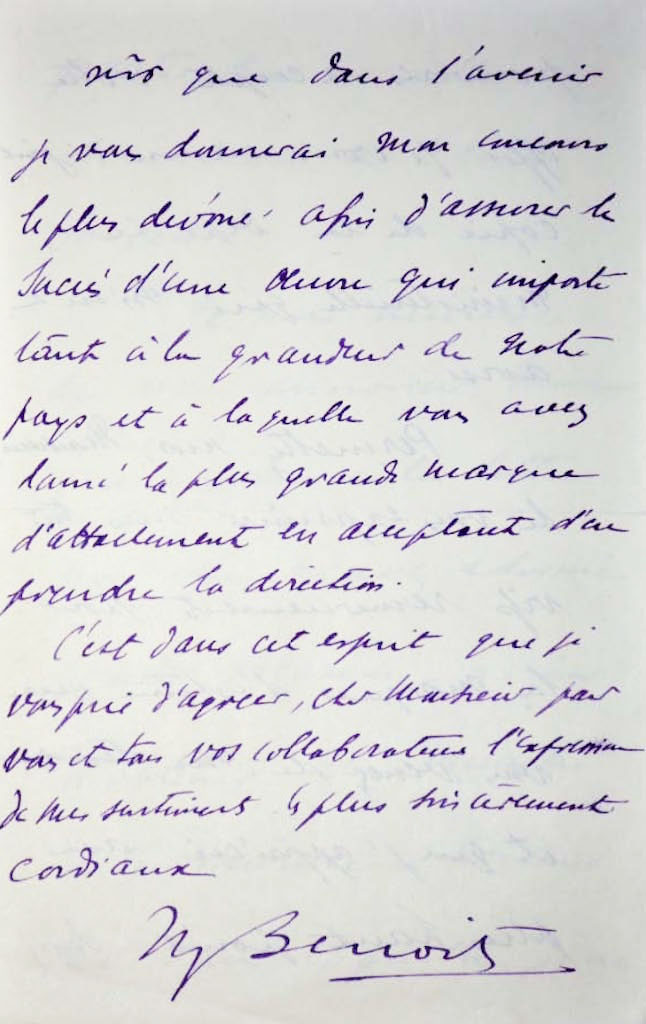 sûrs que dans l'avenir
je vous donnerai mon concours
le plus dévoué afin d'assurer le
Succès d'une œuvre qui importe
tant à la grandeur de Notre
pays et à laquelle vous avez
donné la plus grande marque
d'attachement en acceptant d'en
prendre la direction.
C'est dans cet esprit que je
vous prie d'agréer, cher Monsieur pour
vous et tous vos collaborateurs l'Expression
de mes sentiments les plus sincèrement
cordiaux
Benoist